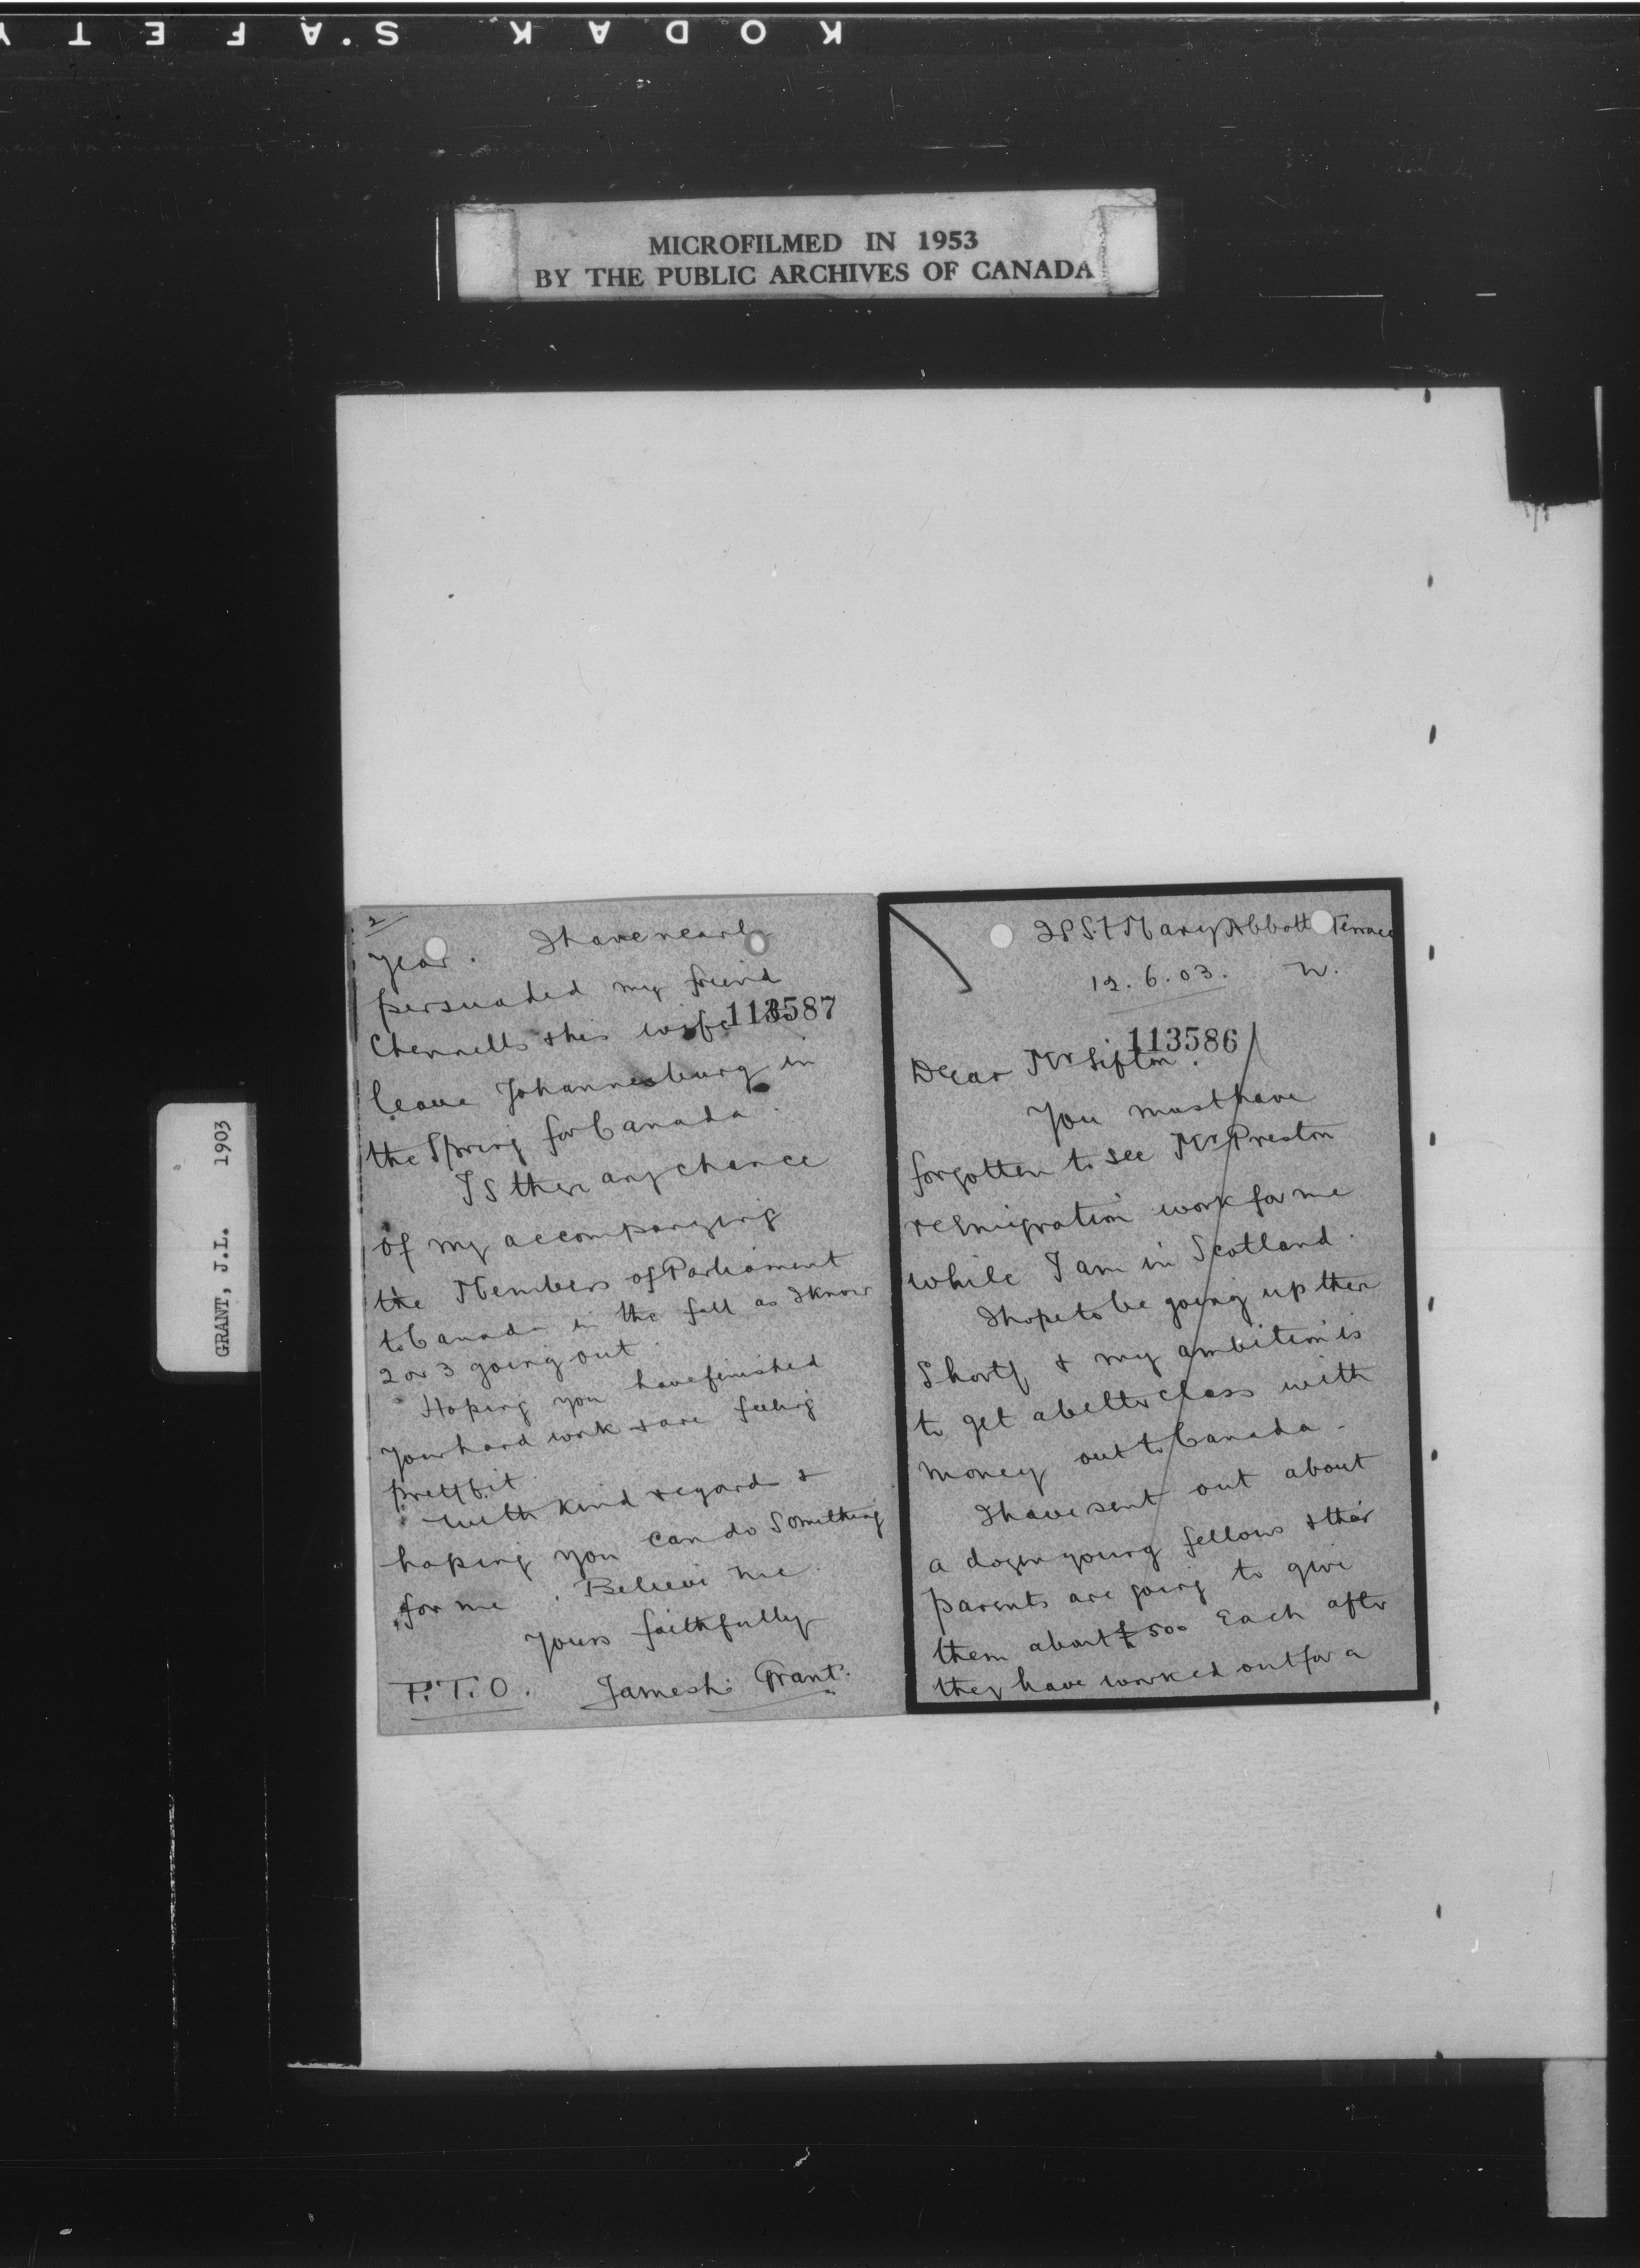 KODAK S'AFETY
MICROFILMED IN 1953
BY THE PUBLIC ARCHIVES OF CANADA
GRANT, J.L. 1903
St Mary Abbott Terrace
12.6.03. W.
113586
Dear Mr Sifton.
You must have
forgotten to see Mr Preston
re Emigration work for me
while I am in Scotland.
I hope to be going up there
shortly & my ambition is
to get a better class with
money out to Canada.
I have sent out about
a dozen young fellows & their
parents are going to give
them about £500 Each after
they have worked out for a
2
year. I have nearly
persuaded my friend
113587
Chennells & his wife to
leave Johannesburg in
the Spring for Canada.
Is there any chance
of my accompanying
the Members of Parliament
to Canada in the fall as I know
2 or 3 going out.
Hoping you have finished
your hard work & are feeling
pretty fit.
With kind regards &
hoping you can do something
for me. Believe me
Yours faithfully
P.T.O. James L. Grant.